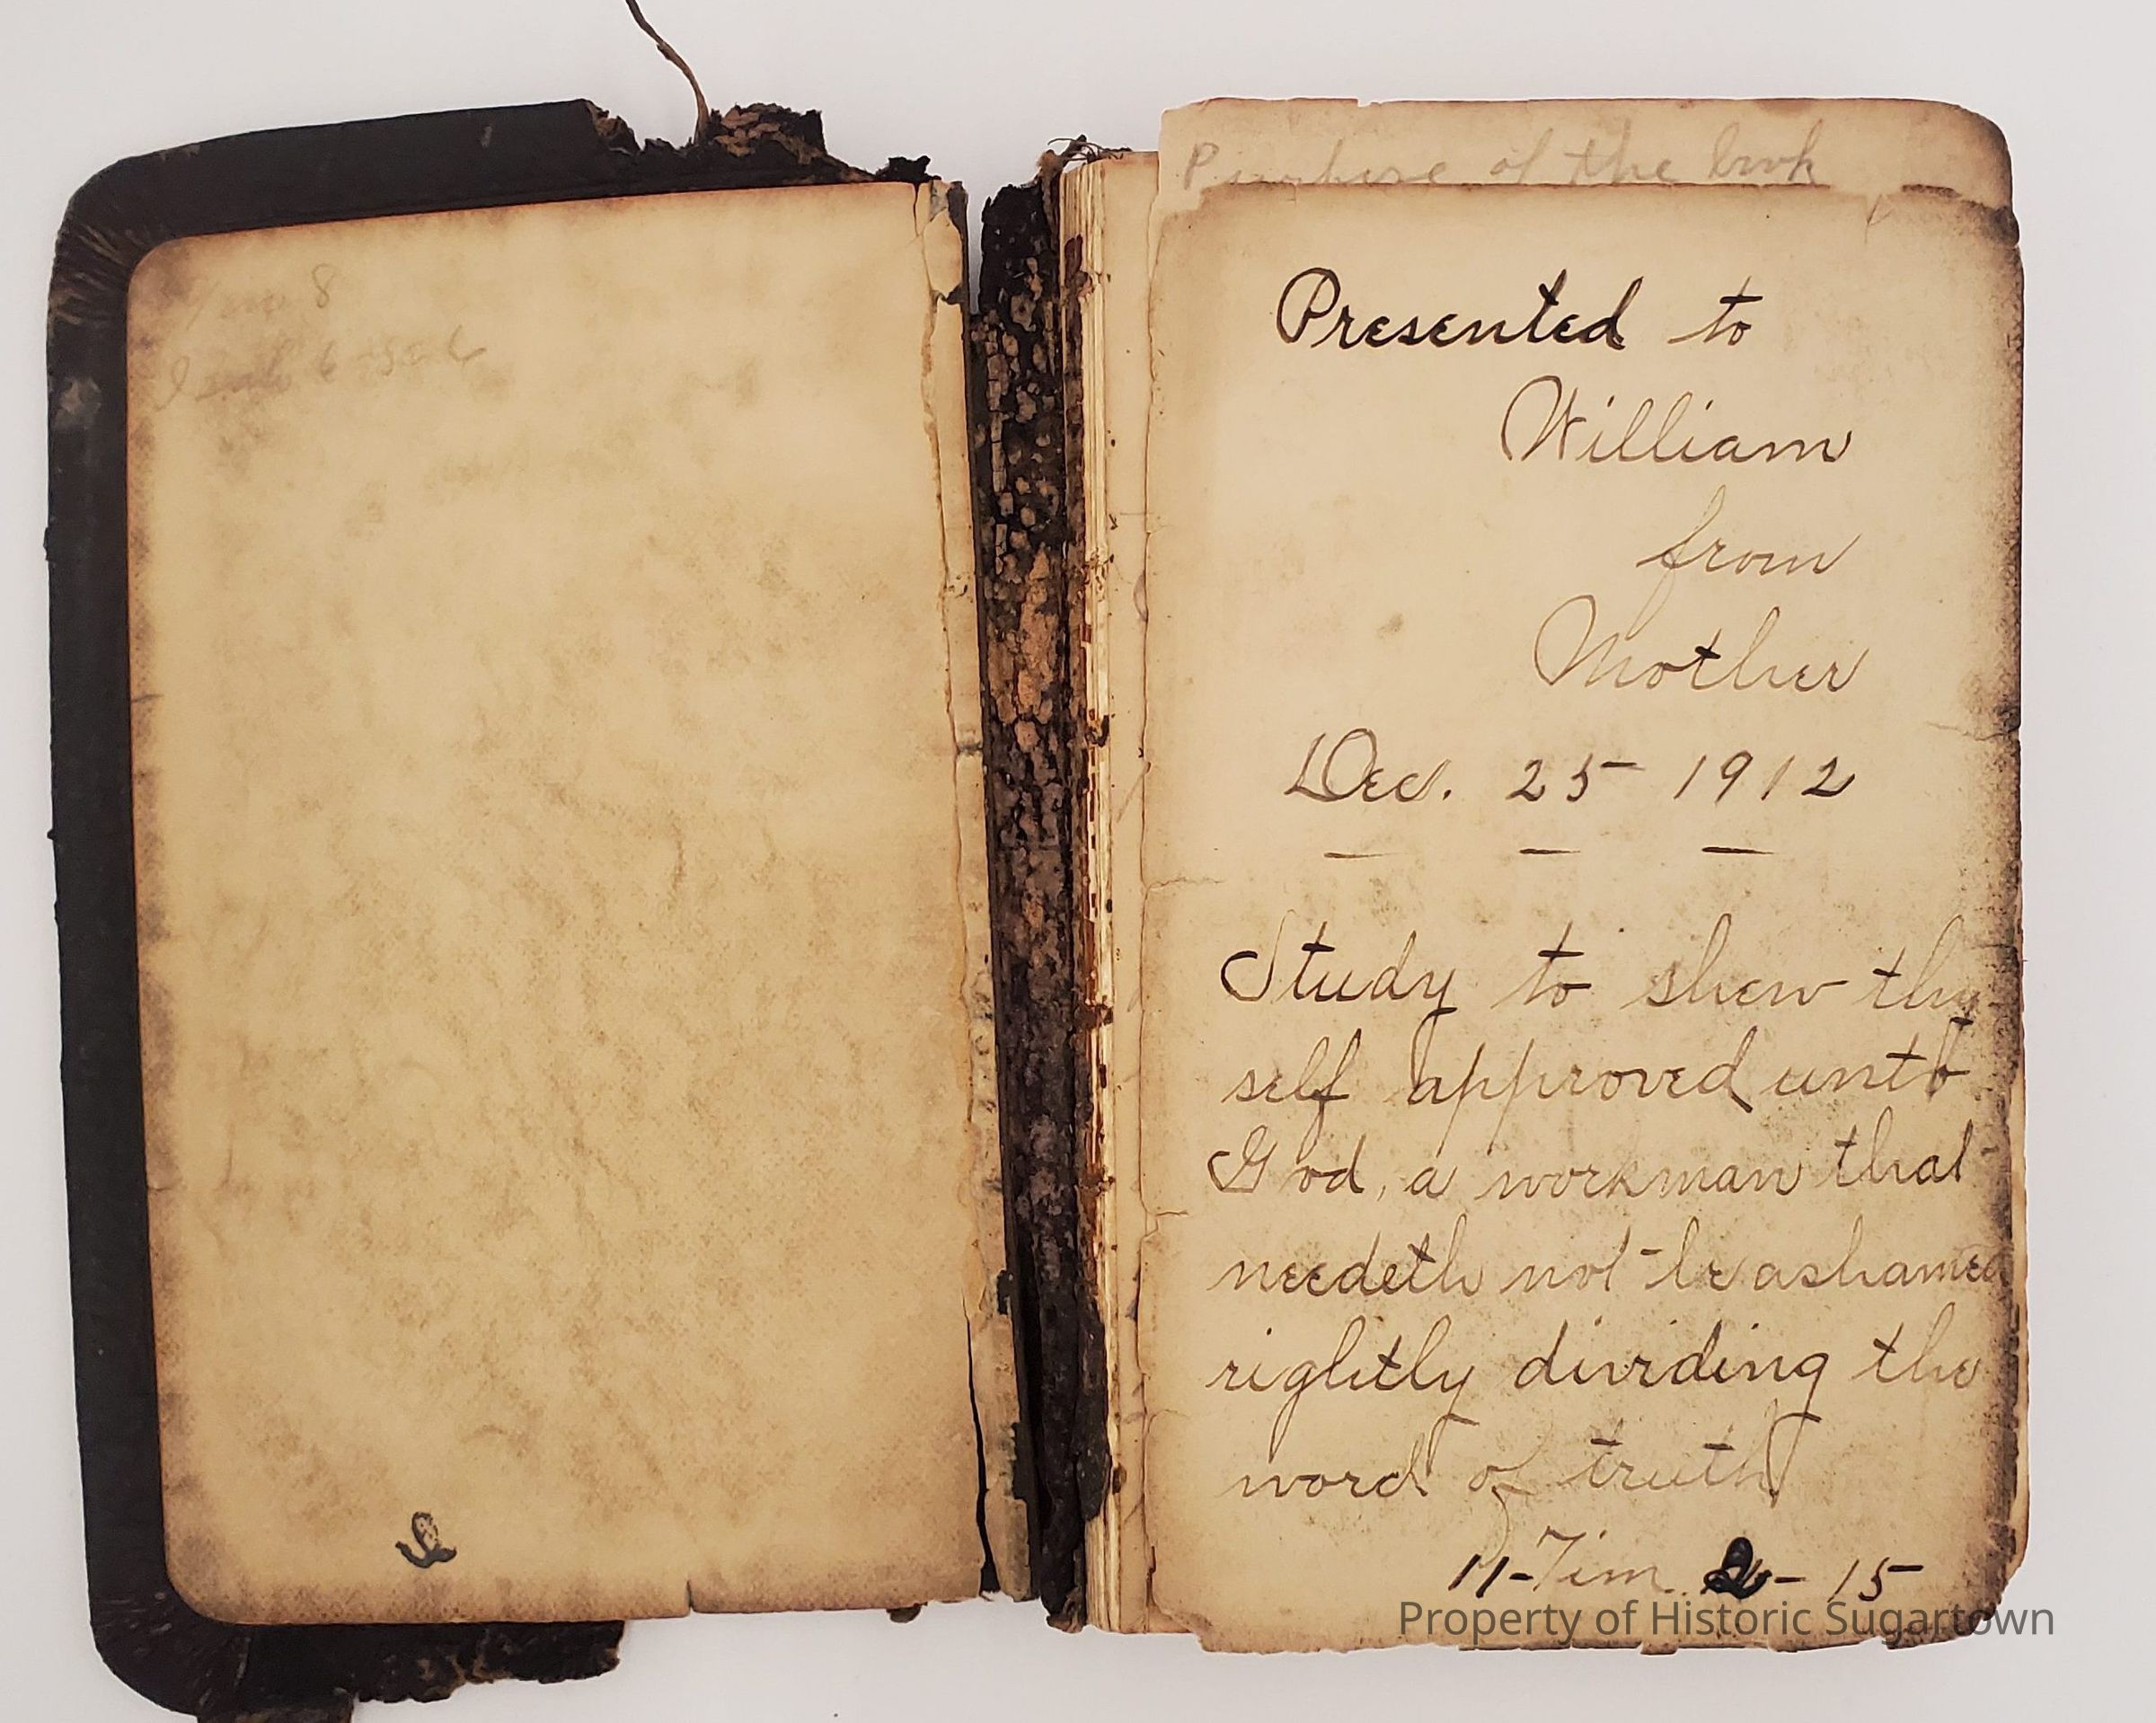 8
Purpose of the book
Presented to
William
from
Mother
Dec. 25 1912
Study to shew thy-
self approved unto
God, a workman that
needeth not be ashamed
rightly dividing the
word of truth
11-Tim 2- 15
Property of Historic Sugartown